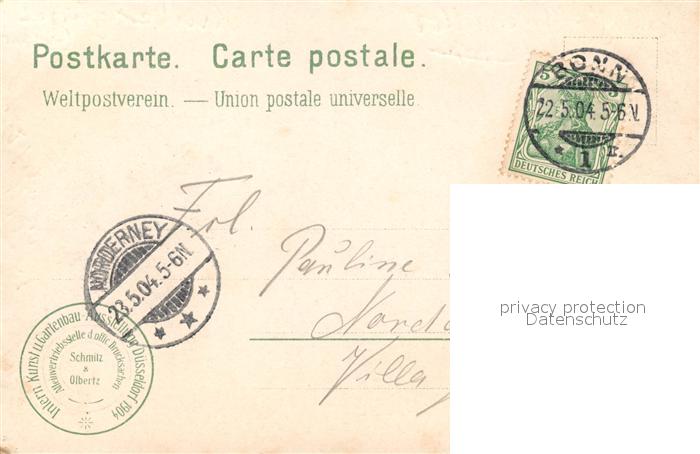 Postkarte. Carte postale.
Weltpostverein. — Union postale universelle.
5 5
DEUTSCHES REICH
BONN
22.5.04.5-6N.
* 1 II.
NORDERNEY
23.5.04.5-6N.
Frl.
Pauline
Nord
Villa
Intern. Kunst u. Gartenbau-Ausstellung Düsseldorf 1904
Alleinvertriebsstelle d. offic. Drucksachen
Schmitz
&
Olbertz
privacy protection
Datenschutz